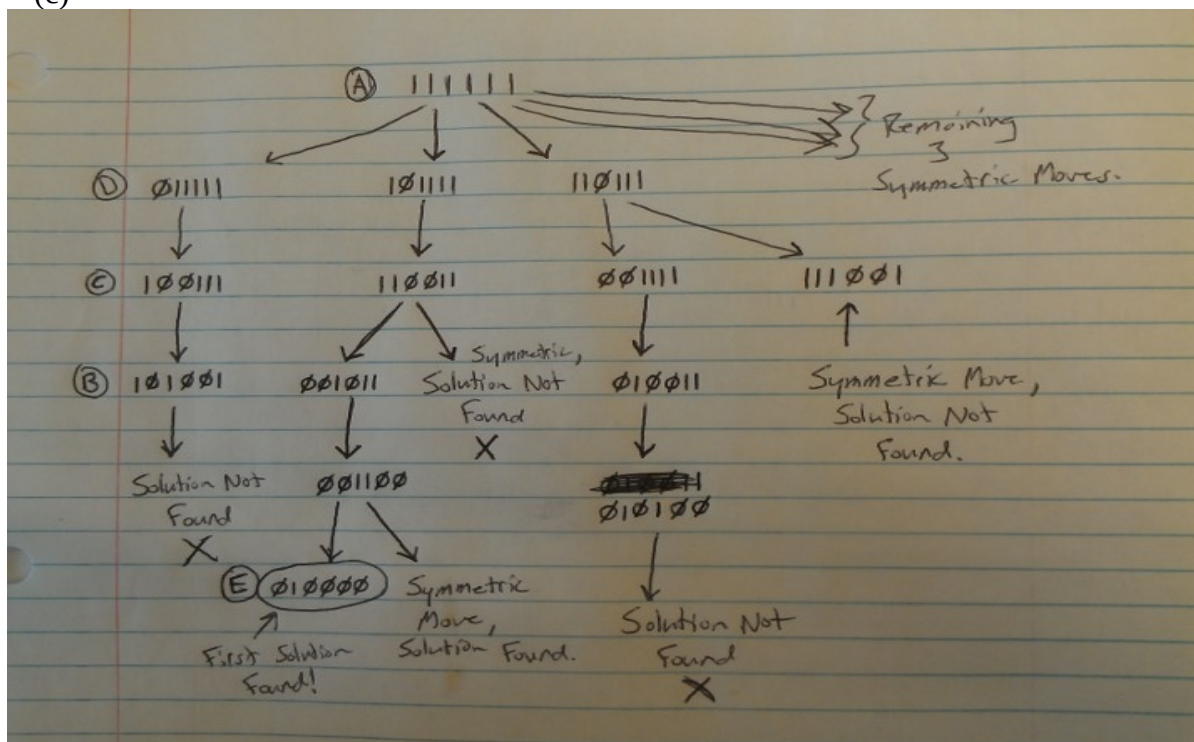 (c)
Ⓐ 111111
Remaining
3
Symmetric Moves.
Ⓓ Ø11111 1Ø1111 11Ø111
Ⓒ 1ØØ111 11ØØ11 ØØ1111 111ØØ1
Ⓑ 1Ø1ØØ1 ØØ1Ø11 Symmetric,
Solution Not
Found
X
Ø1ØØ11 Symmetric Move,
Solution Not
Found.
Solution Not
Found
X
ØØ11ØØ
Ø1Ø1ØØ
Ⓔ Ø1ØØØØ
First Solution
Found!
Symmetric
Move,
Solution Found.
Solution Not
Found
X